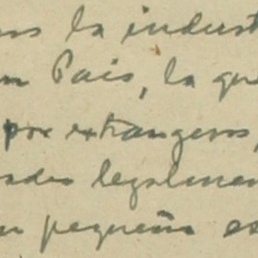 la indust
País, la que
por extrangeros,
legalmen
pequeña es